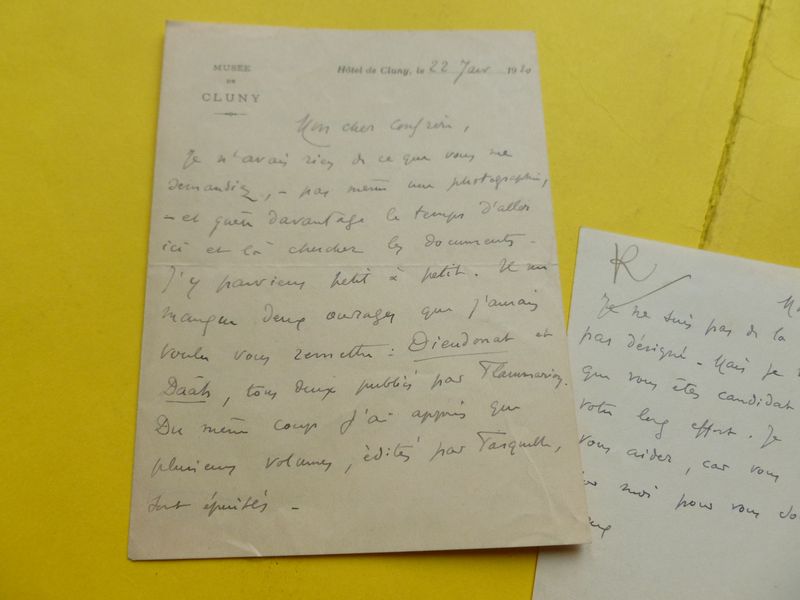 MUSÉE
DE
CLUNY
Hôtel de Cluny, le 22 Janv 1920
Mon cher Confrère,
Je n'avais rien de ce que vous me
demandiez, – pas même une photographie,
– et guère davantage le temps d'aller
ici et là chercher les documents.
J'y parviens petit à petit. Il me
manque deux ouvrages que j'aurais
voulu vous remettre : Dieudonat et
Daâh, tous deux publiés par Flammarion.
Du même coup j'ai appris que
plusieurs volumes, édités par Fasquelle,
sont épuisés –
R
Je ne suis pas de la
pas désigné – Mais je
que vous êtes candidat
votre long effort. Je
vous aider, car vous
moi pour vous